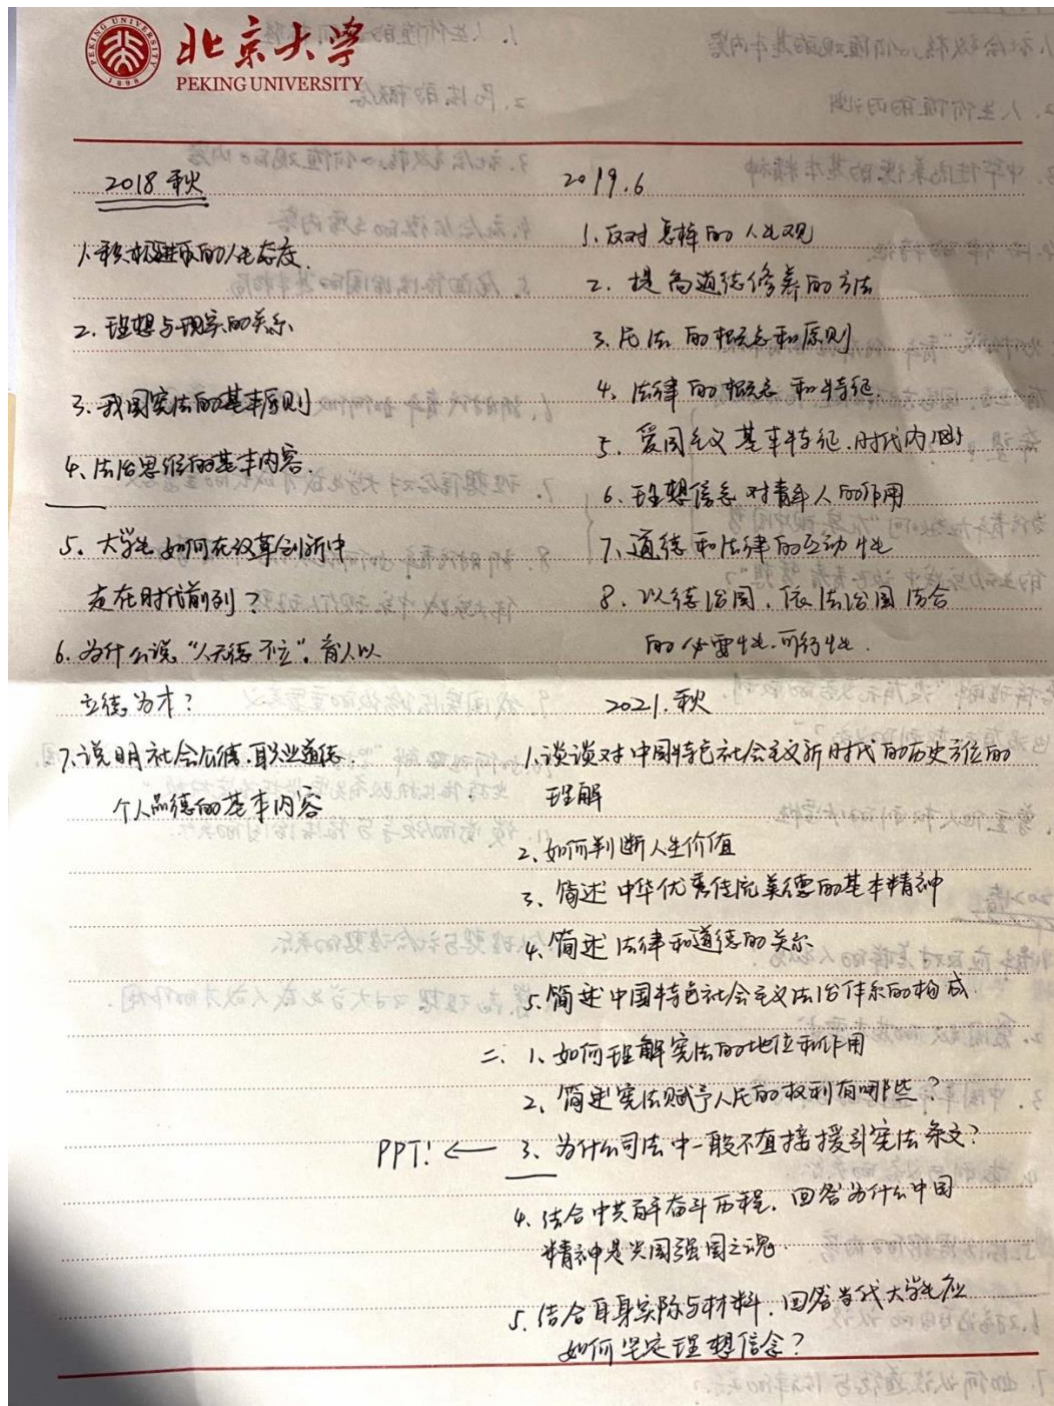 PEKING UNIVERSITY
1898
北京大学
PEKING UNIVERSITY
2018 秋
1.积极进取的人生态度.
2. 理想与现实的关系
3. 我国宪法的基本原则
4、法治思维的基本内容.
5. 大学生如何在改革创新中
走在时代前列?
6. 为什么说"人无德不立",育人以
立德为才?
7、说明社会公德.职业道德.
个人品德的基本内容
2019.6
1.反对怎样的人生观
2. 提高道德修养的方法
3、民法的概念和原则
4、法律的概念和特征.
5. 爱国主义基本特征.时代内涵
6、理想信念对青年人的作用
7、道德和法律的互动性
8、以德治国、依法治国结合
的必要性.可行性.
2021.秋
1.谈谈对中国特色社会主义新时代的历史方位的
理解
2、如何判断人生价值
3、简述中华优秀传统美德的基本精神
4、简述法律和道德的关系
5.简述中国特色社会主义法治体系的构成.
二、1、如何理解宪法的地位和作用
2、简述宪法赋予人民的权利有哪些?
PPT! ← 3、为什么司法中一般不直接援引宪法条文?
4、结合中共百年奋斗历程,回答为什么中国
精神是兴国强国之魂.
5.结合自身实际与材料,回答当代大学生应
如何坚定理想信念?